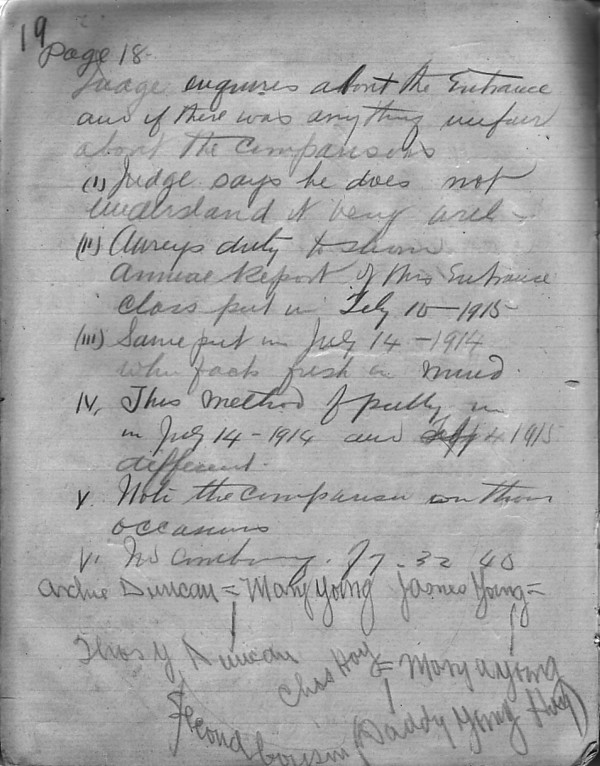 19
Page 18-
Judge enquires about the Entrance
and if there was anything unfair
about the comparisons
(I) Judge says he does not
understand it very well -
(II) duty to show
Annual Report of this Entrance
class put in Feby 10 - 1915
(III) Same put in July 14 - 1914
when facts fresh in mind.
IV, This method of putting in
in July 14 - 1914 and 1915
different.
V. Note the comparison on
occasions
VI
Archie Duncan = Mary Young James Young =
Thos Y Duncan
Chas Hoy = Mary A Young
Second Cousin (Daddy Young Hoy)